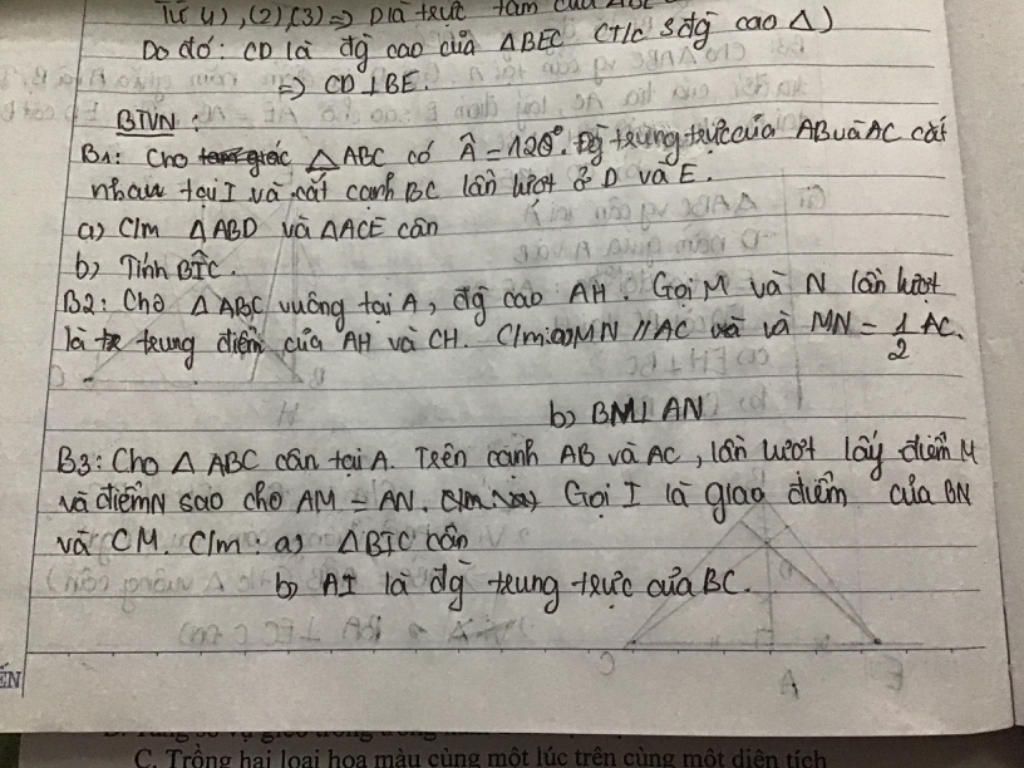 Từ (1), (2), (3) => D là trực tâm của
Do đó: CD là đg cao của ΔBEC (T/c 3 đg cao Δ)
=> CD ⊥ BE.
BTVN :
B1: Cho ΔABC có Â = 120°. Đg trung trực của AB và AC cắt
nhau tại I và cắt cạnh BC lần lượt ở D và E.
a) C/m ΔABD và ΔACE cân
b) Tính BÎC.
B2: Cho ΔABC vuông tại A, đg cao AH. Gọi M và N lần lượt
là trung điểm của AH và CH. C/m: a) MN // AC và MN = 1/2 AC.
b) BM ⊥ AN
B3: Cho Δ ABC cân tại A. Trên cạnh AB và AC, lần lượt lấy điểm M
và điểm N sao cho AM = AN. Gọi I là giao điểm của BN
và CM. C/m: a) ΔBIC cân
b) AI là đg trung trực của BC.
ẾN
C. Trồng hai loại hoa màu cùng một lúc trên cùng một diện tích